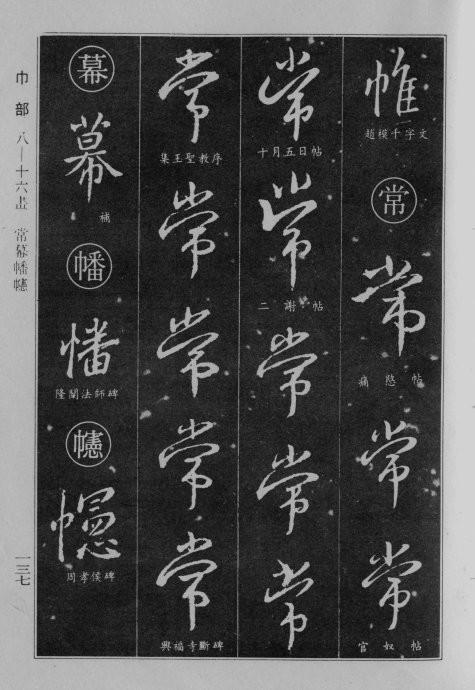 帷
趙模千字文
常
常
痛愍帖
常
常
官奴帖
常
十月五日帖
常
二謝帖
常
常
常
常
集王聖教序
常
常
常
常
興福寺斷碑
幕
幕
補
幡
幡
隆闡法師碑
幰
幰
周孝侯碑
巾部 八—十六畫 常幕幡幰
一三七